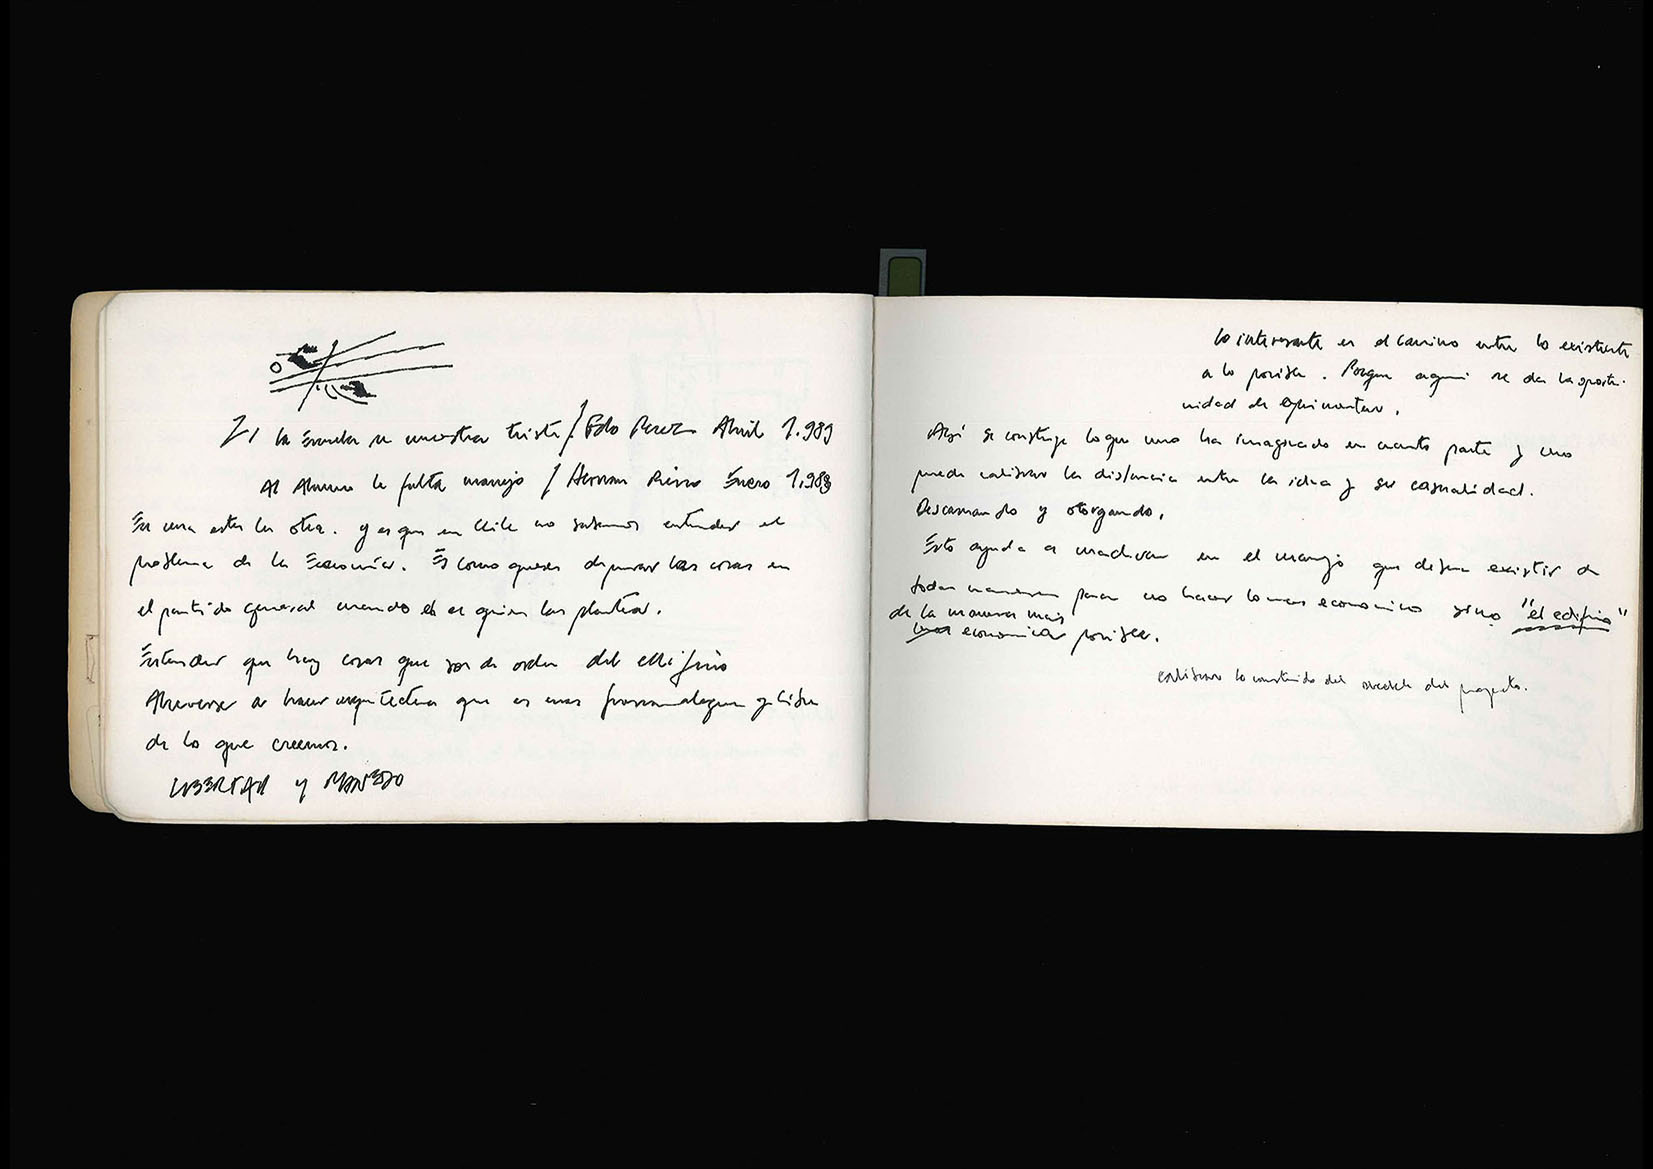 la Escuela se muestra triste / Edo Perez Abril 1.989
Al Alumno le falta manejo / Hernan Riesco Enero 1.989
En una esta la otra. y es que en Chile no sabemos entender el
problema de la Economía. Es como querer depurar las cosas en
el partido general cuando él es quien las plantea.
Entender que hay cosas que son de orden del edificio
Atreverse a hacer arquitectura que es mas y libre
de lo que creemos.
LIBERTAD y MANEJO
lo interesante es el camino entre lo existente
a lo posible. Porque aqui se da la oportu-
nidad de experimentar.
Aqui se construye lo que uno ha imaginado en cuanto parte y uno
puede calibrar la distancia entre la idea y su casualidad.
Descansando y otorgando.
Esto ayuda a madurar en el manejo que debera existir de
todas maneras para no hacer lo mas economico sino "el edificio"
de la manera mais
mas economica posible.
calibrar lo construido del del proyecto.